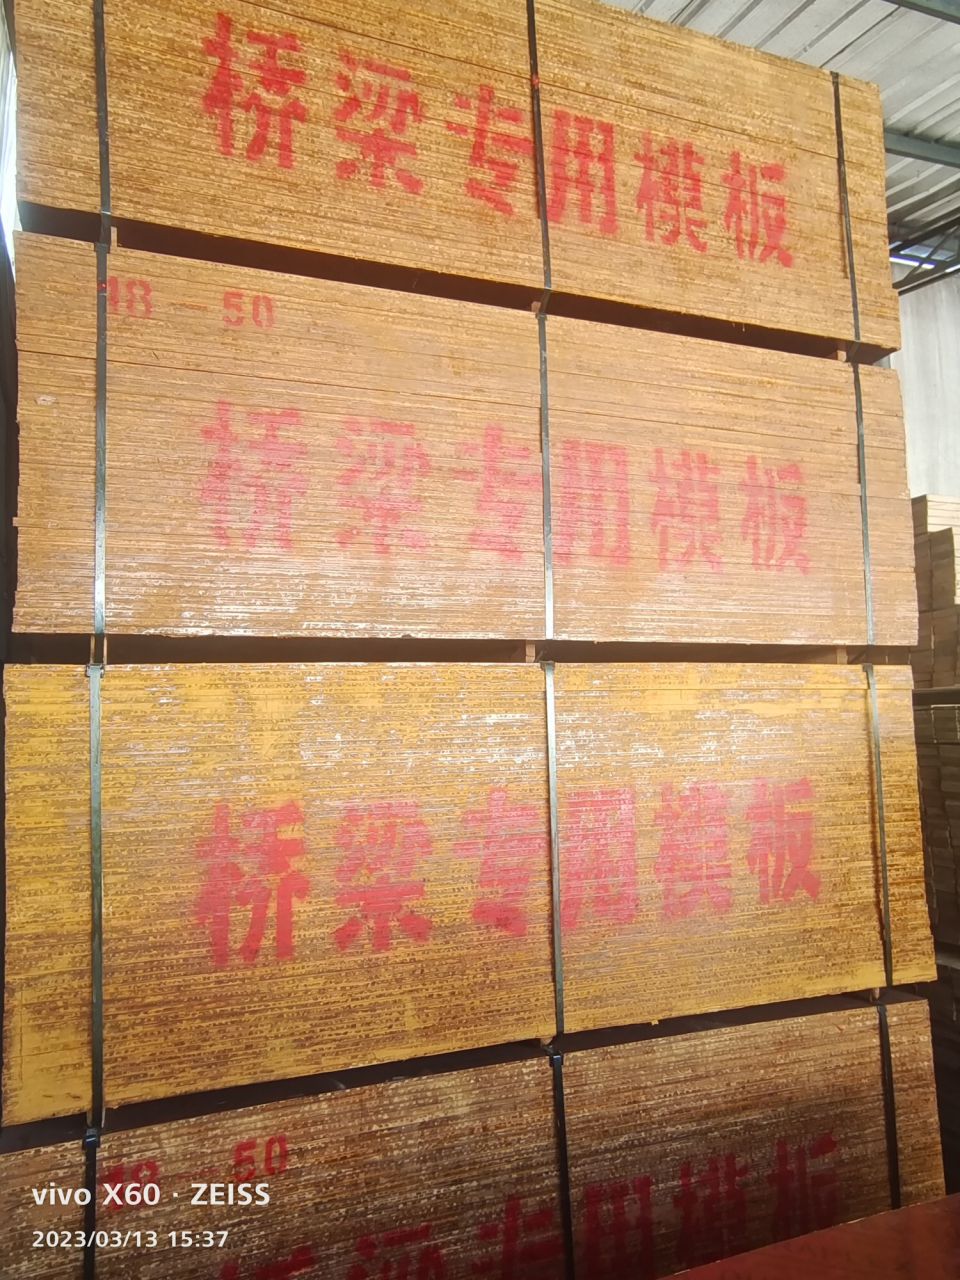 桥梁专用模板
48-50
桥梁专用模板
桥梁专用模板
48-50
桥梁专用模板
vivo X60 · ZEISS
2023/03/13 15:37